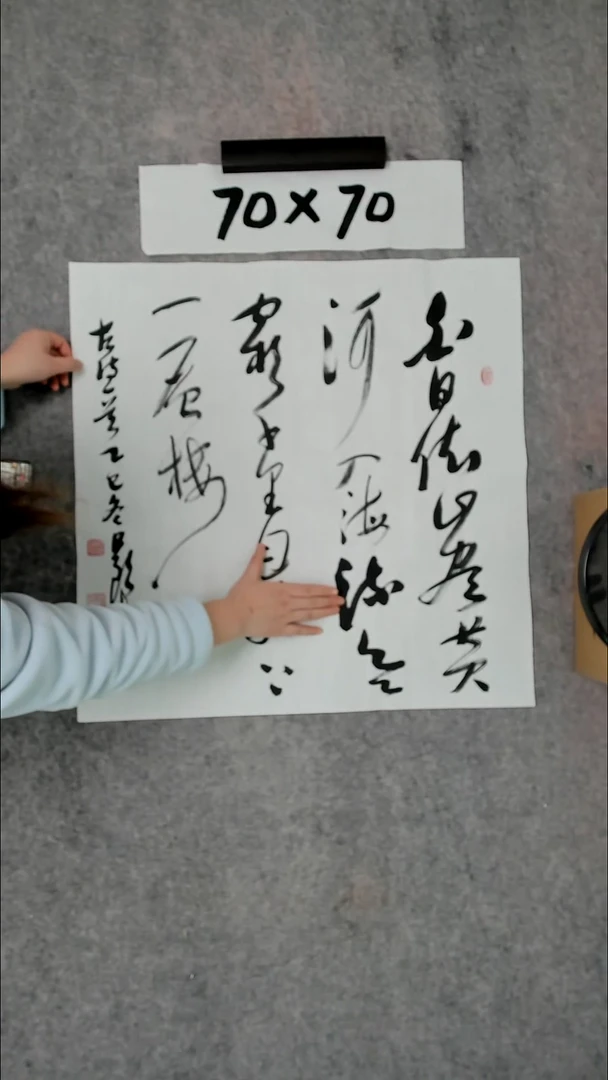 70×70
白日依山盡黄
河入海流欲
窮千里目上
一层楼
古诗一首乙巳冬